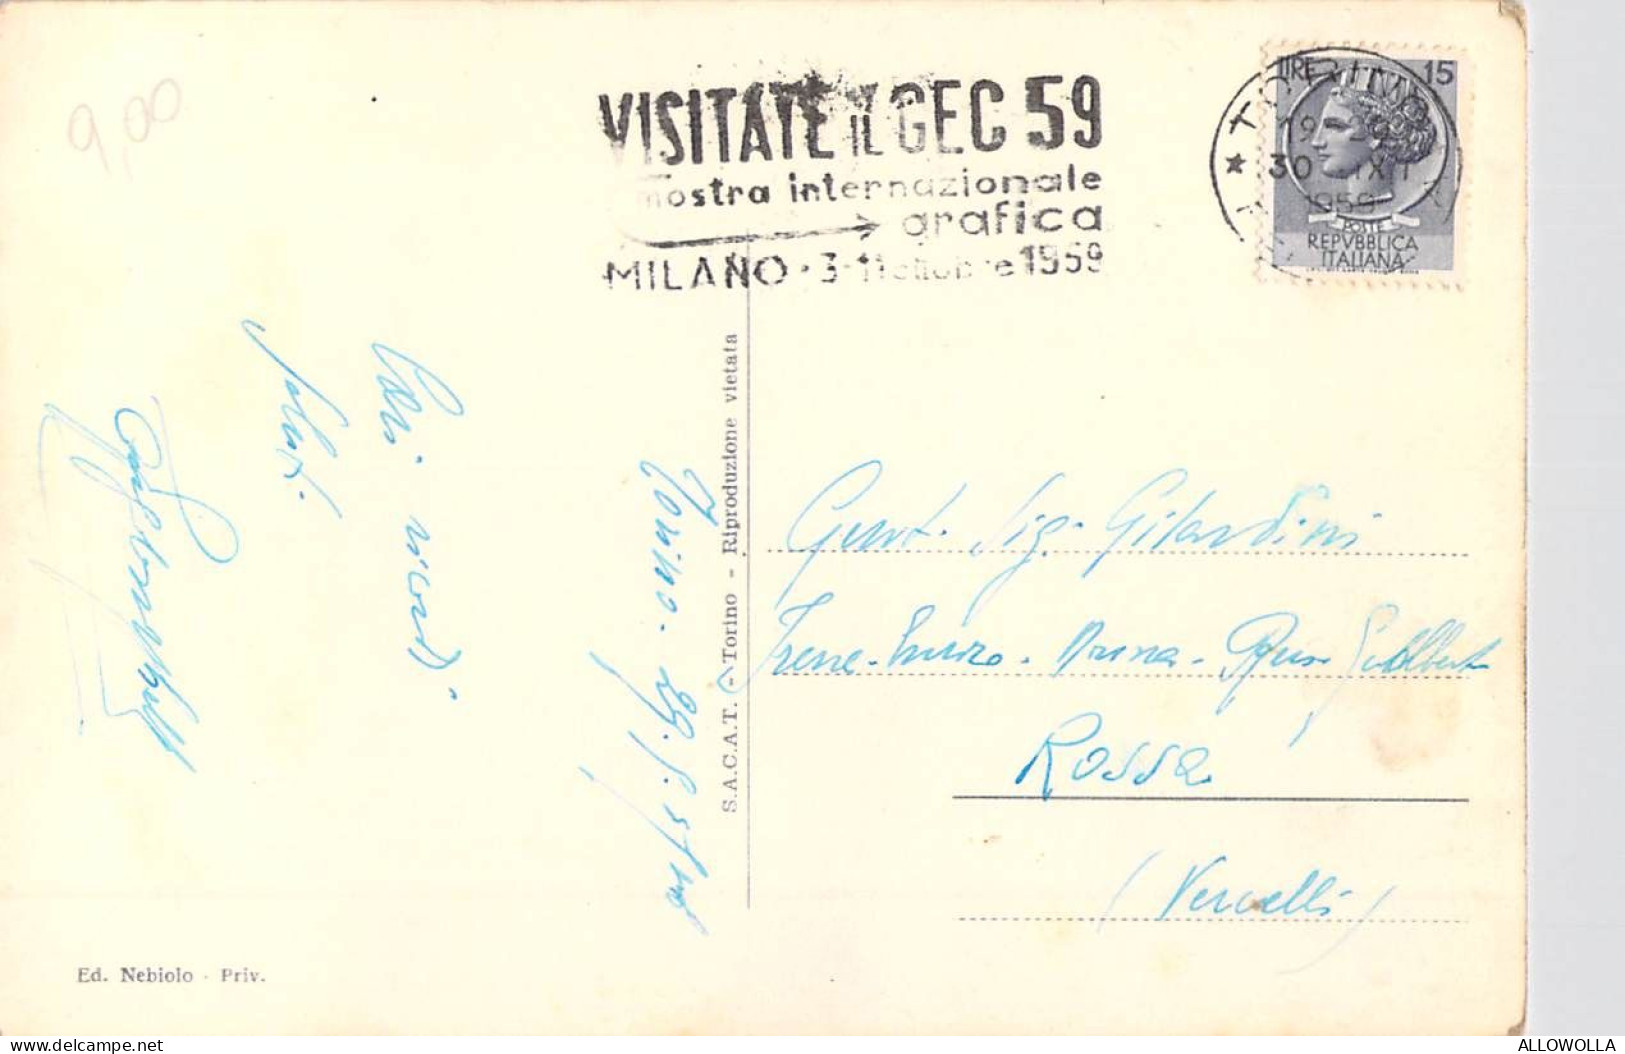 9,00
VISITATE IL GEC 59
mostra internazionale
grafica
MILANO · 3-11 ottobre 1959
LIRE 15
30 IX
1959
POSTE
REPVBBLICA
ITALIANA
Torino - 29.
Cari ricordi
saluti
S.A.C.A.T. - Torino - Riproduzione vietata
Gent. Sig. Gilardini
Irene - Enrico -
Rossa
(Vercelli)
Ed. Nebiolo - Priv.
www.delcampe.net
ALLOWOLLA